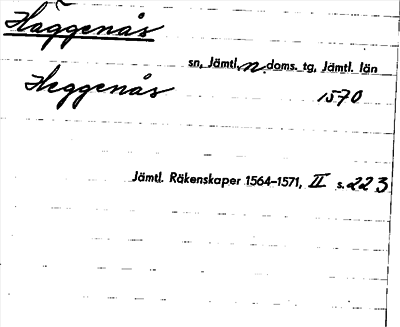 Häggenås
sn, Jämtl. n. doms. tg, Jämtl. län
Heggenås 1570
Jämtl. Räkenskaper 1564–1571, II s. 223